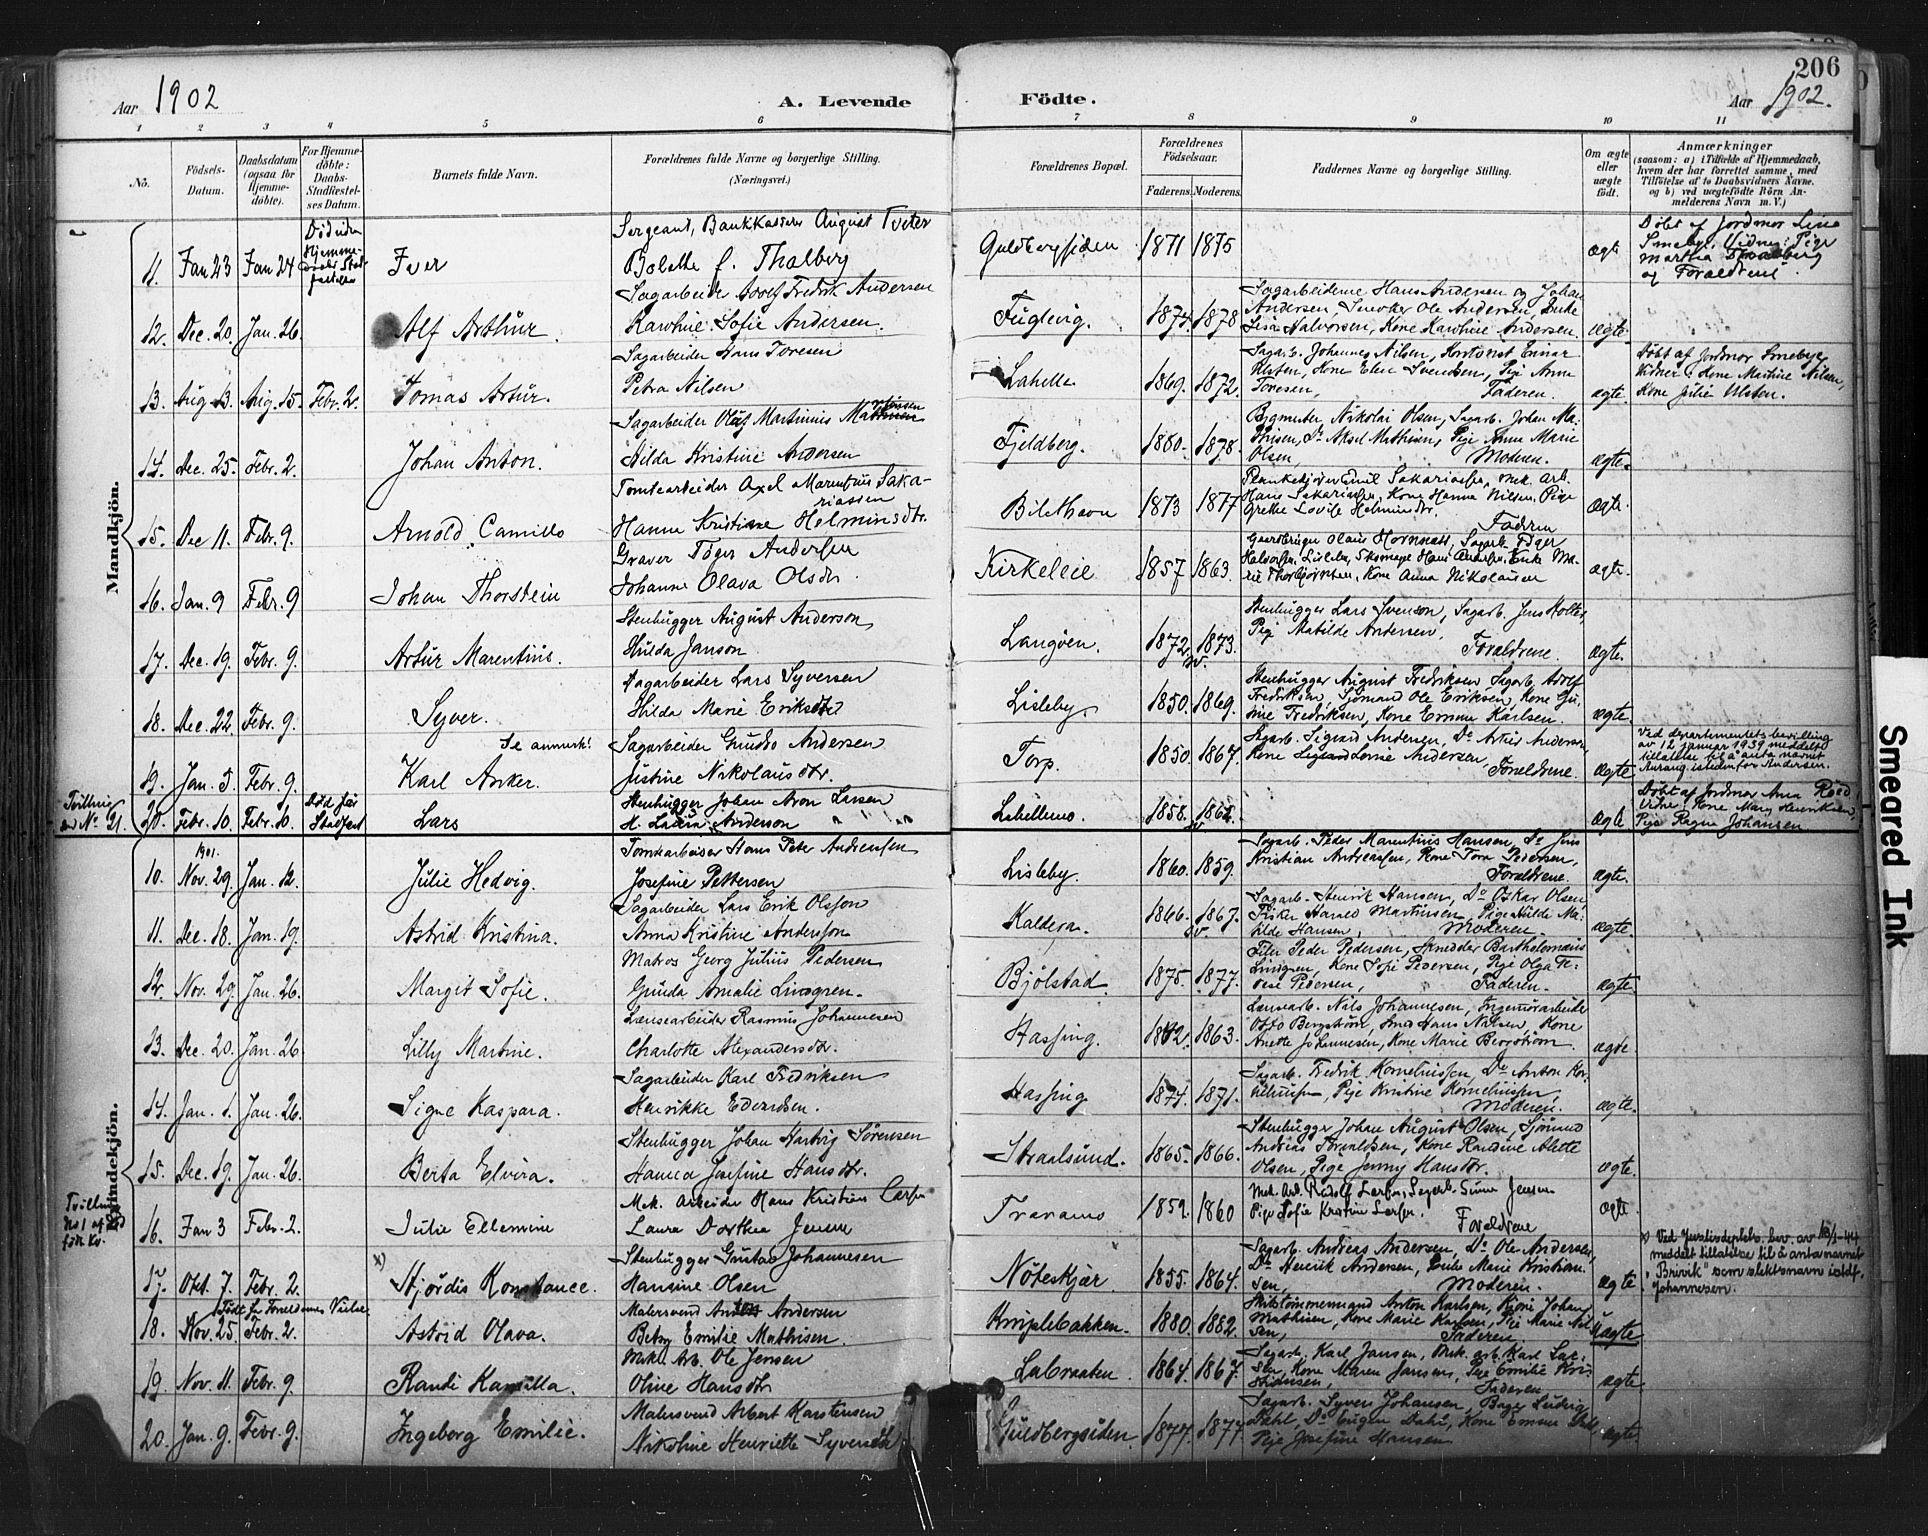 206
Aar 1902
A. Levende
Födte.
Aar 1902.
1 2 3 4 5 6 7 8 9 10 11
No.
Födsels-Datum.
Daabsdatum (ogsaa for Hjemme-döbte).
For Hjemme-döbte: Daabs-Stadfæstel-ses Datum.
Barnets fulde Navn.
Forældrenes fulde Navne og borgerlige Stilling. (Næringsvei.)
Forældrenes Bopæl.
Forældrenes Födselsaar.
Faderens. Moderens.
Faddernes Navne og borgerlige Stilling.
Om ægte eller uægte födt.
Anmærkninger (saasom: a) i Tilfælde af Hjemmedaab, hvem der har forrettet samme, med Tilföielse af to Daabsvidners Navne, og b) ved uægtefödte Börn An-melderens Navn m. V.)
Mandkjön.
11. Jan 23 Jan 24 Död uden Hjemme-daabs Stad-fæstelse Iver
Sergeant, Bankkasserer August Tveter
Bolette f. Thalberg
Guldbergsiden 1871 1875 ægte
Döbt af Jordmor Lina Smeby. Vidner: Pige Martha Thalberg og Forældrene.
12. Dec. 20. Jan. 26. Alf Arthur.
Sagarbeider Adolf Fredrik Andersen
Karoline Sofie Andersen.
Fuglevig. 1874. 1878.
Sagarbeiderne Hans Andersen og Johan
Andersen, Ole Andersen, Enke
Lisa Halvorsen, Kone Karoline Andersen. ægte.
13. Aug. 13. Aug. 15. Febr. 2. Tomas Artur.
Sagarbeider Hans Toresen
Petra Nilsen
Labella 1869. 1872.
Sagarb. Johannes Nilsen, Einar
Ulsten, Kone Elen Svendsen, Pige Anna
Toresen, Faderen. ægte.
Döbt af Jordmor Smeby
Vidner: Kone Martine Nilsen,
Kone Julie Ulsten.
14. Dec. 25. Febr. 2. Johan Anton.
Sagarbeider Olaf Martinius
Hilda Kristine Andersen
Fjeldberg. 1880. 1878.
Bygmester Nikolai Olsen, Sagarb. Johan Ma-
thisen, Do Aksel Mathisen, Pige Anna Marie
Olsen, Moderen. ægte.
15. Dec 11. Febr. 9. Arnold Camillo
Tomtearbeider Axel Marentius Saka-
riassen
Hanna Kristiane Helminsdtr.
Bilethavn 1873 1877
Emil Sakariassen, Mek. Arb.
Hans Sakariassen, Kone Hanna Nilsen, Pige
Grethe Lovise Helminsdtr.
Faderen ægte.
16. Jan. 9 Febr. 9 Johan Thorstein
Graver Töger Andersen
Johanne Olava Olsdtr.
Kirkeleie 1857 1863.
Gaardbruger Olaus Hornnæs, Sagarb. Töger
Halvorsen, Lisleby, Skomager Hans Andersen, Enke Ma-
rie Thorbjörnsen, Kone Anna Nikolaisen ægte.
17. Dec. 19. Febr. 9. Artur Marentius.
Stenhugger August Anderson
Hulda Janson
Langöen. 1872. 1873.
Stenhugger Lars Svenson, Sagarb. Jens Holte,
Pige Matilde Andersen,
Forældrene. ægte.
18. Dec. 22. Febr. 9. Syver.
Sagarbeider Lars Syversen
Hilda Marie
Lisleby. 1850. 1869.
Stenhugger August Fredriksen, Sagarb. Adolf
Fredriksen, Sjömand Ole Eriksen, Kone Gu-
nie Fredriksen, Kone Emma Karlsen. ægte.
19. Jan. 5 Febr. 9. Karl Anker. Se anmerk!
Sagarbeider Gundro Andersen
Justine Nikolausdtr.
Torp. 1850. 1867.
Sagarb. Sigvard Andersen, Do Artur Andersen
Kone Lovise Andersen, Forældrene. ægte
Ved departementets bevilling
av 12 januar 1939 meddelt
tillatelse til å anta navnet
istedenfor Andersen.
Tvilling med No 21. 20. Febr. 10. Febr. 10. Död för Stadfæst Lars
Stenhugger Johan Aron Larsen
H. Laura Anderson
Labellmo. 1858. 1862. ægte
Döbt af Jordmor Anna Röed
Vidne: Kone Mary Henriksen,
Pige Ragna Johansen
Kvindekjön.
10. 1901. Nov. 29. Jan. 12. Julie Hedvig.
Tomtearbeider Hans Peter Andreassen
Josefine Pettersen
Lisleby. 1860. 1859.
Sagarb. Peder Marentius Hansen, Do Jens
Kristian Andreassen, Kone Tora Pedersen,
Forældrene. ægte.
11. Dec. 18. Jan. 19. Astrid Kristina.
Sagarbeider Lars Erik Olsson
Anna Kristine Anderson
Kaldera. 1866. 1867.
Sagarb. Henrik Hansen, Do Oskar Olsen,
Fisker Harald Martinsen, Pige Hilde Ma-
tilde Hansen, Moderen. ægte
12. Nov. 29. Jan. 26. Margit Sofie.
Matros Georg Julius Pedersen
Gunda Amalie Lindgren.
Bjölstad. 1875. 1877.
Filer Peder Pedersen, Skredder Bartholomæus
Lindgren, Kone Sofie Pedersen, Pige Olga Te-
rese Pedersen, Faderen. ægte.
13. Dec. 20. Jan. 26. Lilly Martine.
Lænsearbeider Rasmus Johannesen
Charlotte Alexandersdtr.
Hassing. 1863.
Lænsearb. Nils Johannesen, Ingeniörarbeider
Otto Bergström, Smed Hans Nilsen, Kone
Anette Johannesen, Kone Marie Bergström. ægte.
14. Jan. 1. Jan. 26. Signe Kaspara.
Sagarbeider Karl Fredriksen
Henrikke Edvardsen.
Hassing 1874. 1871.
Sagarb. Fredrik Korneliussen, Do Anton Kor-
neliussen, Pige Kristine Korneliussen,
Moderen. ægte.
15. Dec. 19. Jan. 26. Berta Elvira.
Stenhugger Johan Hartvig Sörensen
Hanna Josefine Hansdtr.
Straalsund. 1865. 1866.
Stenhugger Johan August Olsen, Sjömand
Andreas Torvaldsen, Kone Randine Alette
Olsen, Pige Jenny Hansdtr. ægte.
Tvilling No 1 af födt Kv. 16. Jan 3 Febr. 2. Julie Ellemine
Mek. Arbeider Hans Kristian Larsen
Laura Dorthea Jensen
Traraus 1859. 1860
Mek. Arb. Rudolf Larsen, Sagarb. Simon Jensen
Pige Sofie Kristine Larsen.
Forældrene ægte
17. Okt. 7. Febr. 2. x) Hjördis Konstance.
Stenhugger Gustav Johannesen
Hansine Olsen
Nöteskjær. 1855. 1864.
Sagarb. Andreas Andersen, Do Ole Andersen,
Do Henrik Andersen, Enke Marie Kristian-
sen, Moderen. ægte
x) Ved Justisdeptets bev. av 18/1-44
meddelt tillatelse til å anta navnet
"Brivik" som slektsnavn istdf.
Johannesen.
18. Nov. 25. Febr. 2. Födt för Forældrenes Vielse Astrid Olava.
Malersvend Anton Andersen
Betzy Emilie Mathisen
Kniplebakken. 1880. 1882.
Skibstömmermand Anton Karlsen, Johan
Mathisen, Kone Marie Karlsen, Pige Marie Nil-
sen, Faderen. uægte
19. Nov. 11. Febr. 9. Randi Kamilla.
Mek. Arb. Ole Jensen
Oline Hansdtr
Labraaten. 1864. 1867.
Sagarb. Karl Jansen, Mek. arb. Karl Lar-
sen, Kone Maren Jansen, Pige Emilie Kri-
stiansen, Faderen ægte.
20. Jan. 9. Febr. 9. Ingeborg Emilie.
Malersvend Albert Karstensen
Nikoline Henriette Syversdtr
Guldbergsiden. 1877. 1877
Sagarb. Syver Johansen, Bager Ludvig
Dahl, Do Eugen Dahl, Kone Emma Dahl,
Pige Josefine Hansen ægte.
Smeared Ink